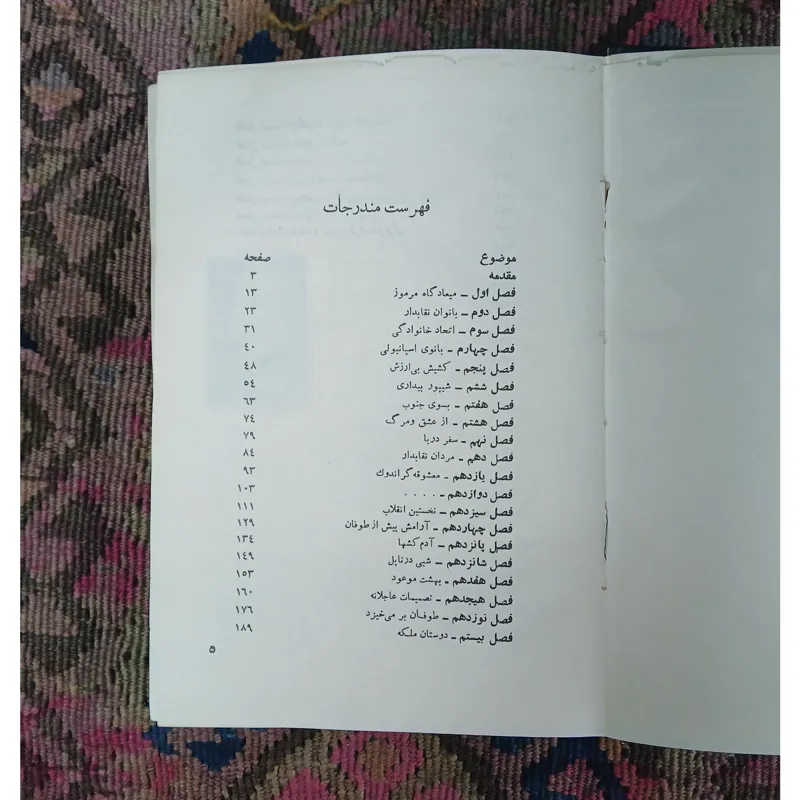 فهرست مندرجات
موضوع صفحه
مقدمه ۳
فصل اول ـ میعادگاه مرموز ۱۳
فصل دوم ـ بانوان نقابدار ۲۳
فصل سوم ـ اتحاد خانوادگی ۳۱
فصل چهارم ـ بانوی اسپانیولی ۴۰
فصل پنجم ـ کشیش بی‌ارزش ۴۸
فصل ششم ـ شیپور بیداری ۵۴
فصل هفتم ـ بسوی جنوب ۶۳
فصل هشتم ـ از عشق ومرگ ۷۴
فصل نهم ـ سفر دریا ۷۹
فصل دهم ـ مردان نقابدار ۸۴
فصل یازدهم ـ معشوقه گراندوك ۹۳
فصل دوازدهم ـ . . . . ۱۰۳
فصل سیزدهم ـ نخستین انقلاب ۱۱۱
فصل چهاردهم ـ آرامش پیش از طوفان ۱۲۹
فصل پانزدهم ـ آدم کشها ۱۳۴
فصل شانزدهم ـ شبی در ناپل ۱۴۹
فصل هفدهم ـ بهشت موعود ۱۵۳
فصل هیجدهم ـ تصمیمات عاجلانه ۱۶۰
فصل نوزدهم ـ طوفان بر می‌خیزد ۱۷۶
فصل بیستم ـ دوستان ملکه ۱۸۹
۵